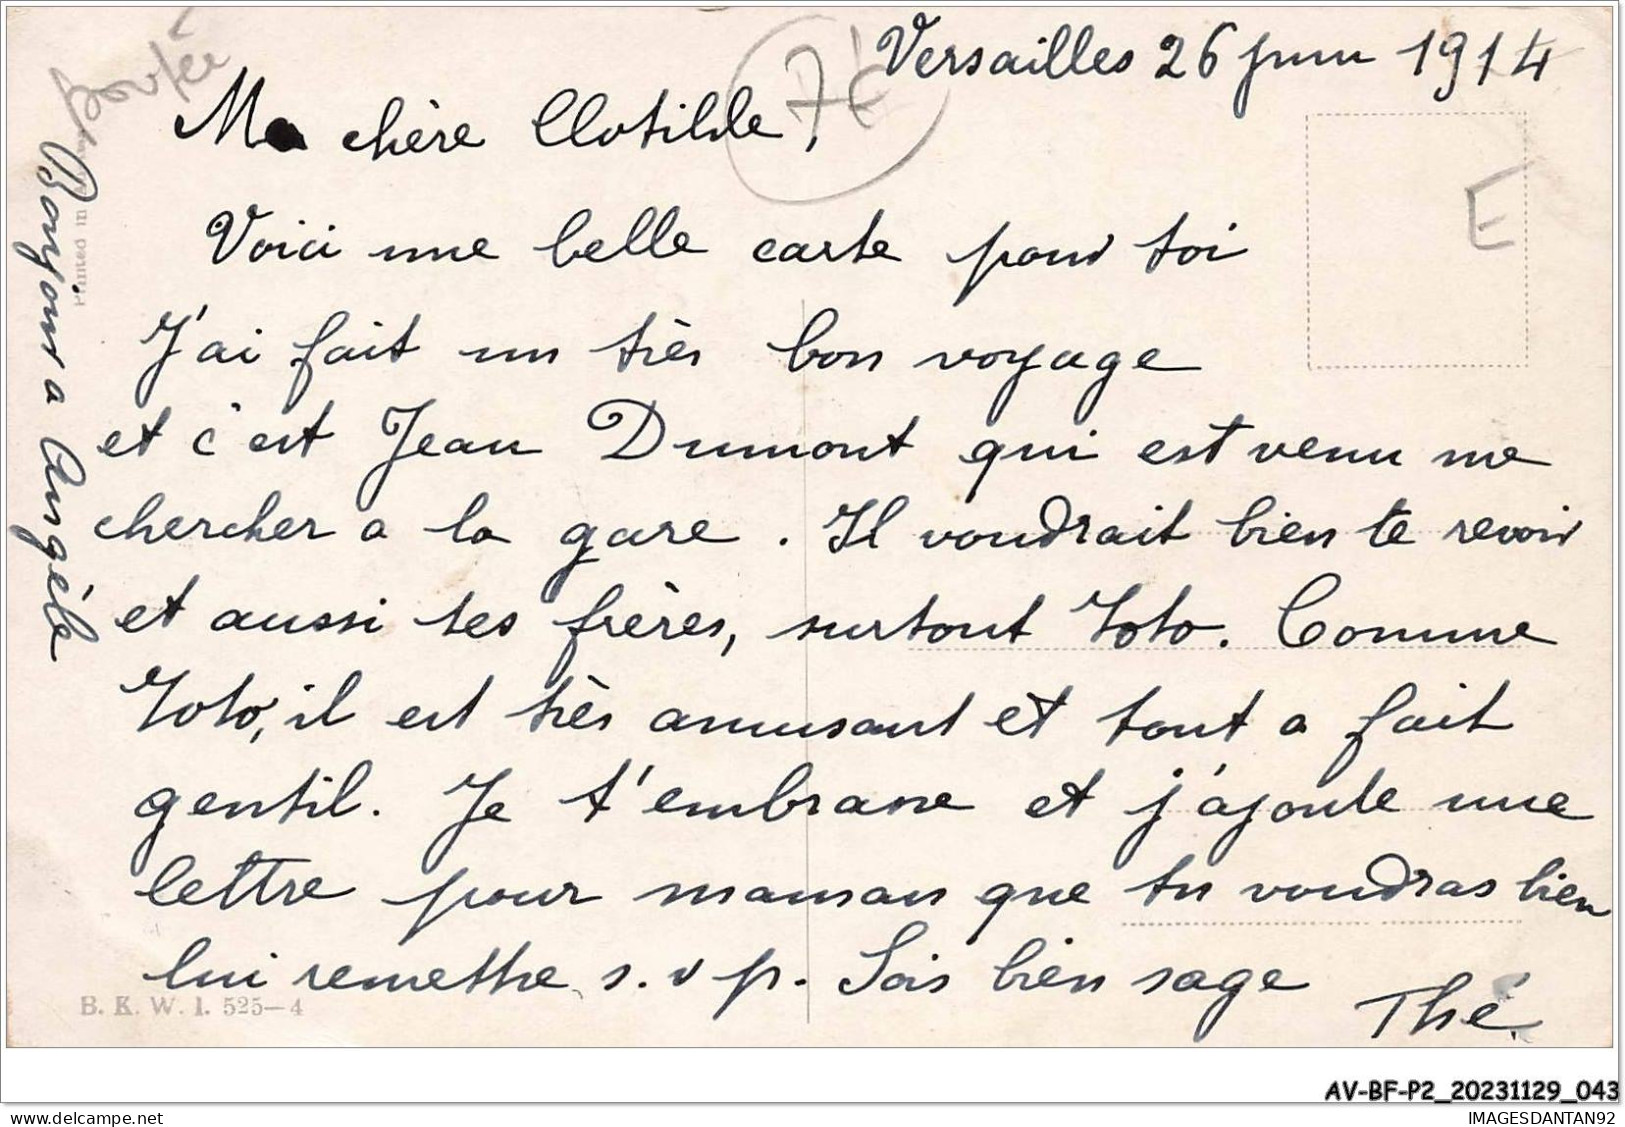 Versailles 26 juin 1914
Ma chère Clotilde,
Voici une belle carte pour toi
J'ai fait un très bon voyage
et c'est Jean Dumont qui est venu me
chercher a la gare. Il voudrait bien te revoir
et aussi tes frères, surtout Toto. Comme
Toto, il est très amusant et tout a fait
gentil. Je t'embrasse et j'ajoute une
lettre pour maman que tu voudras bien
lui remettre s.v p. Sois bien sage
Thé.
Bonjour a Angèle
Printed in
76
E
B. K. W. I. 525-4
AV-BF-P2_20231129_043
IMAGESDANTAN92